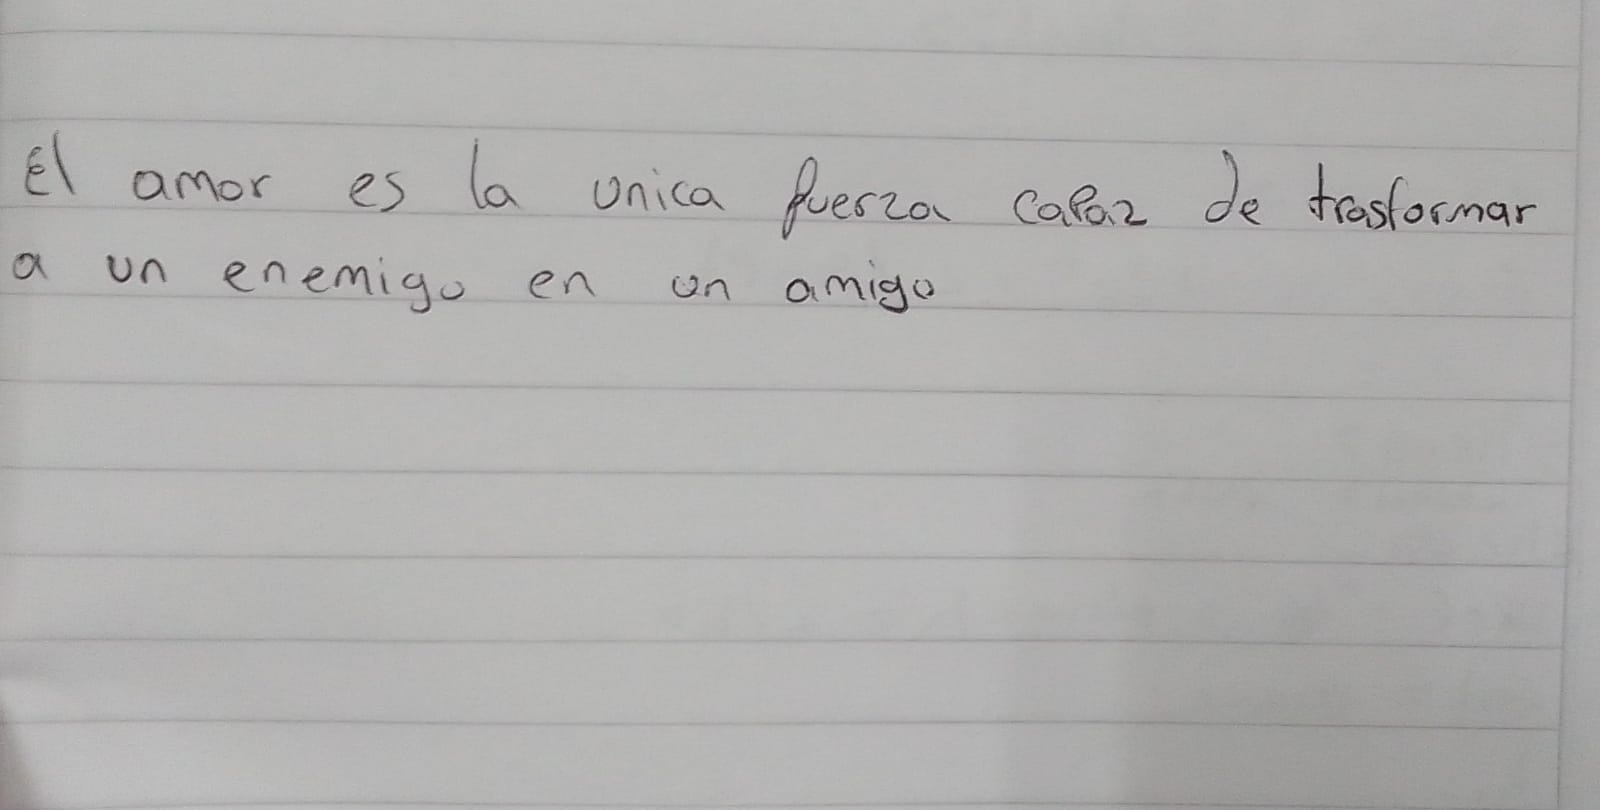 El amor es la unica fuerza capaz de trasformar
a un enemigo en un amigo